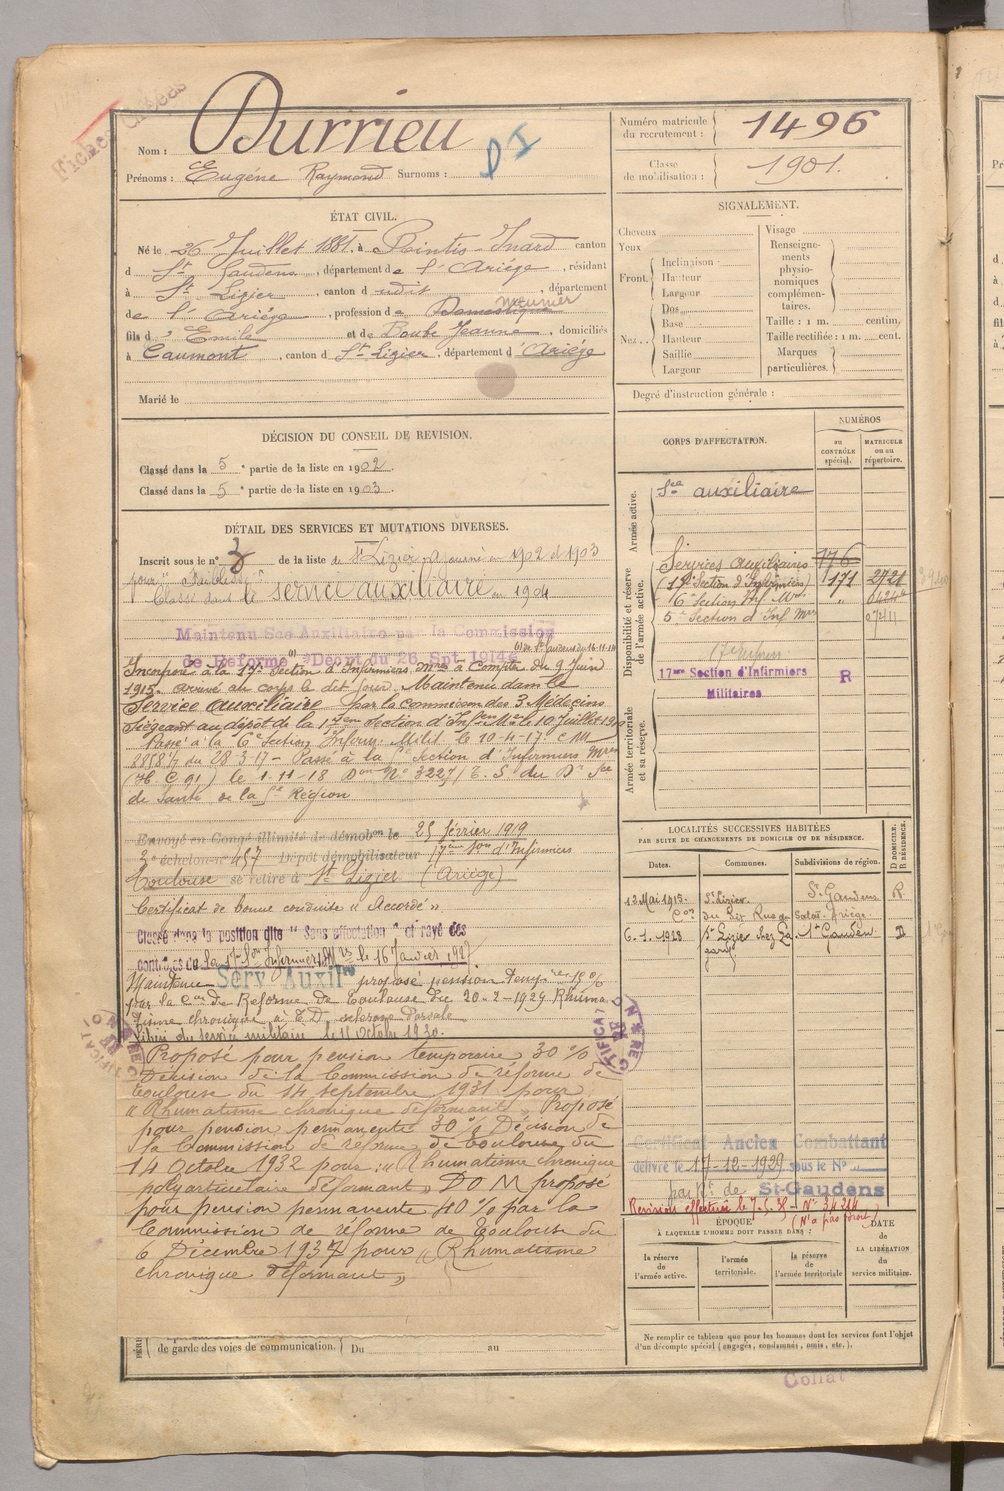 Fiches
Nom : Durrieu
Prénoms : Eugène Raymond Surnoms :
Numéro matricule du recrutement : 1496
Classe de mobilisation : 1901.
ÉTAT CIVIL.
Né le 26 Juillet 1881. à Pointis-Inard canton
d St Gaudens, département de l'Ariège, résidant
à St Lizier, canton d udit, département
de l'Ariège, profession de Domestique meunier
fils d' Emile et de Boube Jeanne, domiciliés
à Caumont, canton d St Lizier, département d'Ariège
Marié le
DÉCISION DU CONSEIL DE REVISION.
Classé dans la 5e partie de la liste en 1902.
Classé dans la 5e partie de la liste en 1903.
DÉTAIL DES SERVICES ET MUTATIONS DIVERSES.
Inscrit sous le n° 3 de la liste de St Lizier ajourné en 1902 et 1903
pour "Faiblesse"
Classé dans le service auxiliaire en 1904
Maintenu Sce Auxiliaire par la Commission
de Réforme Décret du 26 Spt. 1914
Incorporé à la 17e Section d'Infirmiers Mres à Compter du 9 Juin
1915. Arrivé au corps le dit jour. Maintenu dans le
Service auxiliaire par la commission des 3 Médecins
siégeant au dépôt de la 17eme section d'Infiers Mres le 10 Juillet
Passé à la 6e Section Infirm. Milit. le 10-4-17. C.M
8858/7 du 28.3.17 - Passé à la Section d'Infirmiers Mres
le 1.11.18 Don N° 3227/6.S du Dr Sce
de Santé de la 5e Région
Envoyé en Congé illimité de démobon le 25 février 1919
3e échelon n° 457 Dépôt démobilisateur 17eme Son d'Infirmiers
Toulouse se retire à St Lizier (Ariège)
Certificat de bonne conduite « Accordé »
Classé dans la position dite "Sans affectation" et rayé des
contrôles de la 17e Son Infirmiers Mres le 16 Janvier 1927
Maintenu Serv Auxilre proposé pension Tempre 10%
par la Con de Réforme de Toulouse du 20-2-1929 Rhuma
tisme chronique
Libéré du service militaire le 11 Octobre 1930.
Proposé pour pension temporaire 30 %
Décision de la Commission de réforme de
Toulouse du 14 septembre 1931 pour
« Rhumatisme chronique déformant » Proposé
pour pension permanente 30 % Décision de
la Commission de réforme de Toulouse du
14 Octobre 1932 pour : « Rhumatisme chronique
polyarticulaire déformant » DOM proposé
pour pension permanente 40 % par la
Commission de réforme de Toulouse du
6 Décembre 1937 pour « Rhumatisme
chronique déformant »
de garde des voies de communication. Du au
SIGNALEMENT.
Cheveux
Yeux
Front. Inclinaison
Hauteur
Largeur
Nez.. Dos
Base
Hauteur
Saillie
Largeur
Visage
Renseignements physionomiques complémentaires.
Taille : 1 m. centim.
Taille rectifiée : 1 m. cent.
Marques particulières.
Degré d'instruction générale :
CORPS D'AFFECTATION.
NUMÉROS
au CONTRÔLE spécial.
MATRICULE ou au répertoire.
Armée active.
Sce auxiliaire
Disponibilité et réserve de l'armée active.
Services Auxiliaires 176
(17e Section d'Infirmiers) 171 2721
6e Section Inf. Mres "
5e Section d'Inf Mres 07411
Armée territoriale et sa réserve.
17me Section d'Infirmiers R
Militaires
LOCALITÉS SUCCESSIVES HABITÉES
PAR SUITE DE CHANGEMENTS DE DOMICILE OU DE RÉSIDENCE.
Dates. Communes. Subdivisions de région. D DOMICILE. R RÉSIDENCE.
12 Mai 1915. St Lizier St Gaudens R
6-1-1928 St Lizier chez St Gaudens D
Certificat Ancien Combattant
délivré le 17-12-1929 sous le N°
par de St-Gaudens
ÉPOQUE
À LAQUELLE L'HOMME DOIT PASSER DANS :
DATE de LA LIBÉRATION du service militaire.
la réserve de l'armée active.
l'armée territoriale.
la réserve de l'armée territoriale
Ne remplir ce tableau que pour les hommes dont les services font l'objet
d'un décompte spécial (engagés, condamnés, omis, etc.).
Collat